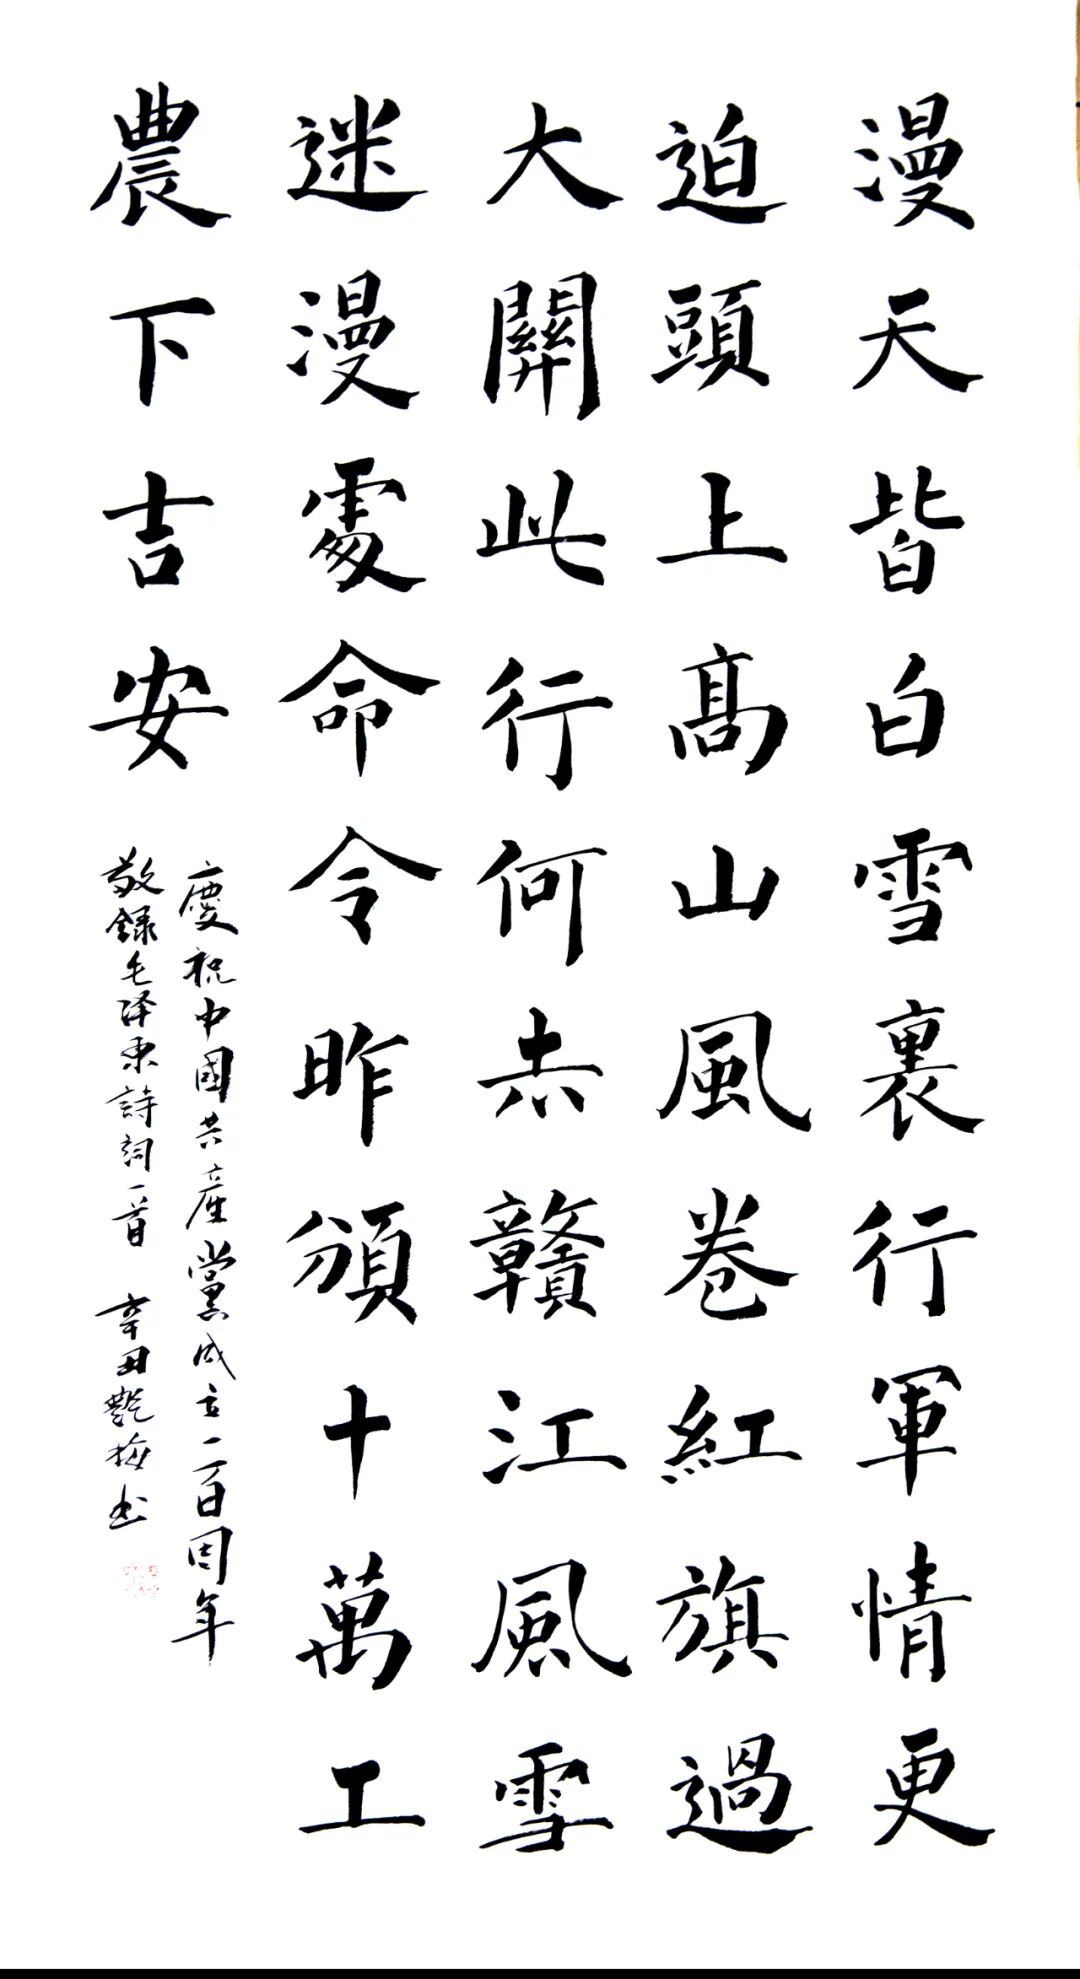 漫天皆白雪裏行軍情更
迫頭上高山風卷紅旗過
大關此行何去贛江風雪
迷漫處命令昨頒十萬工
農下吉安
慶祝中國共產黨成立一百周年
敬錄毛泽东詩詞一首 辛丑艷梅书